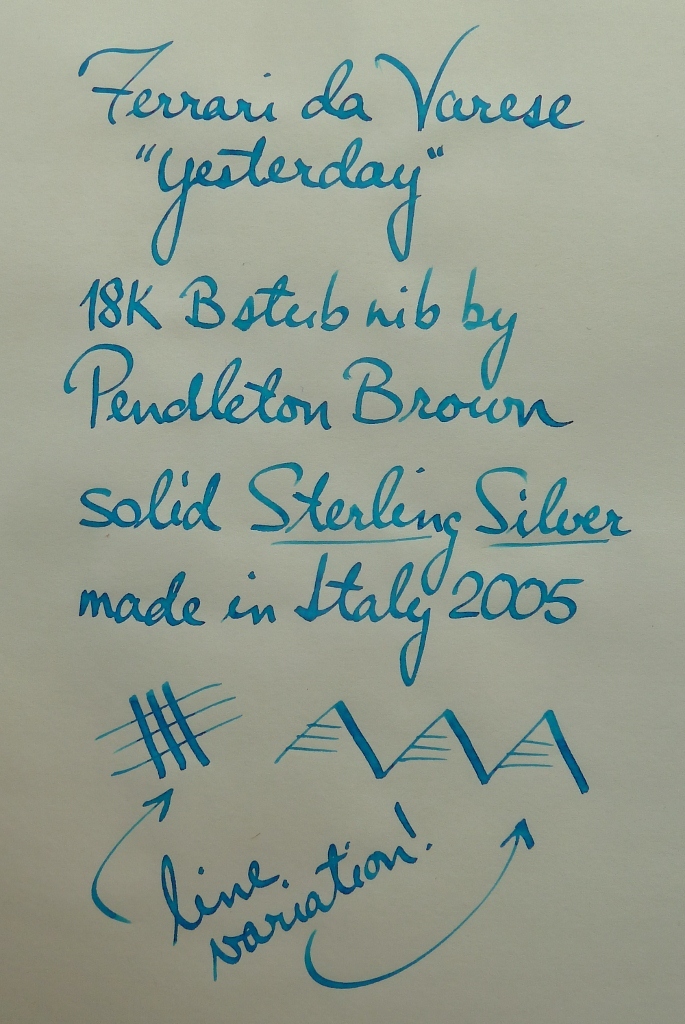 Ferrari da Varese
"yesterday"
18K B stub nib by
Pendleton Brown
solid Sterling Silver
made in Italy 2005
line
variation!